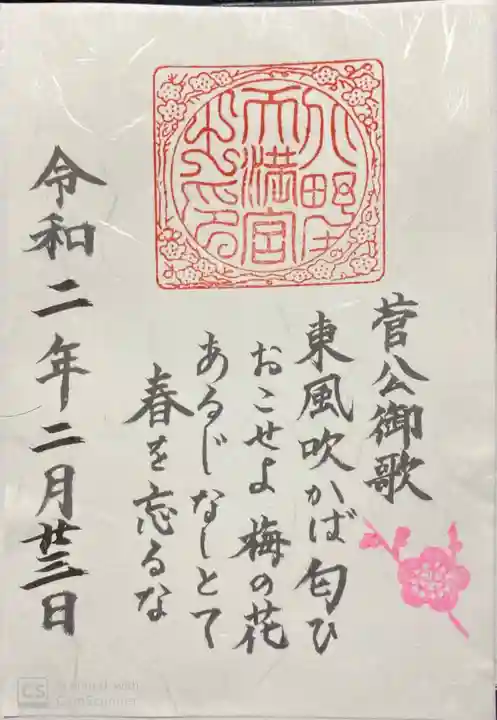 菅公御歌
東風吹かば匂ひ
おこせよ梅の花
あるじなしとて
春を忘るな
令和二年二月廿三日
CS
Scanned with
CamScanner